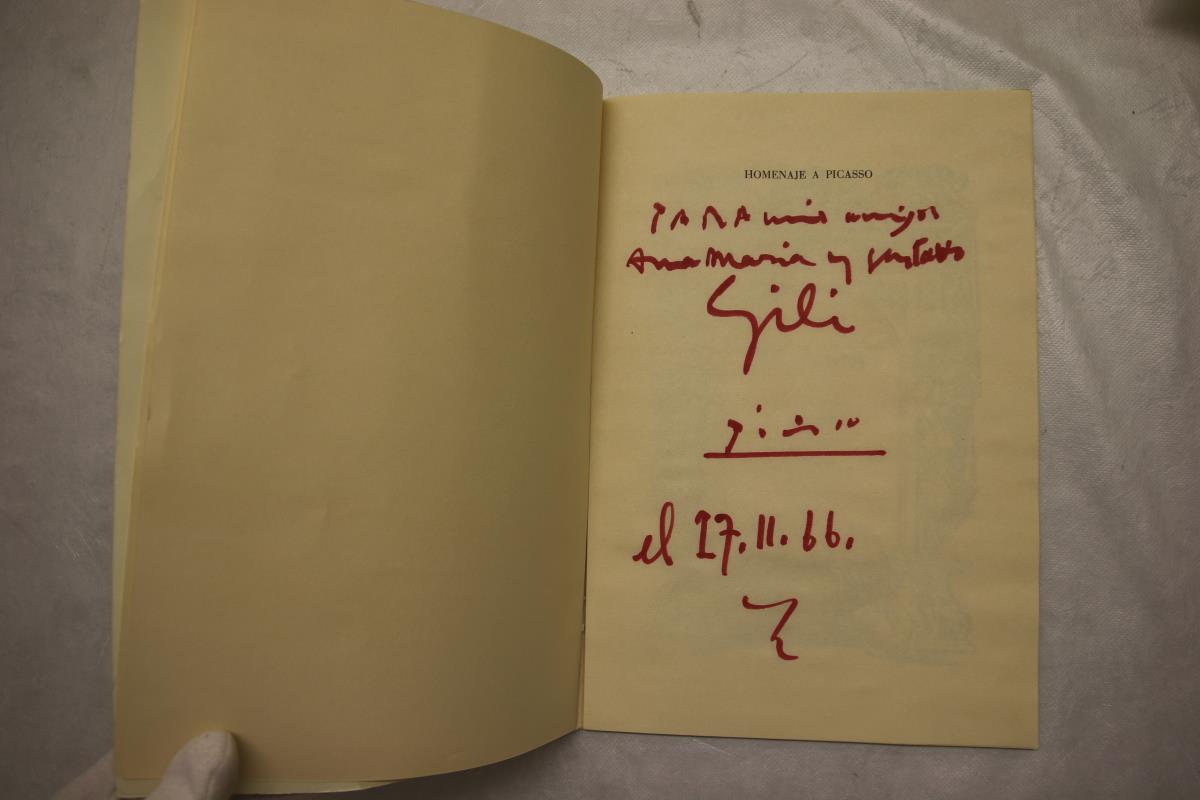 HOMENAJE A PICASSO
PARA mis amigos
Ana Maria y Gustavo
Gili
Picasso
el 17.11.66.